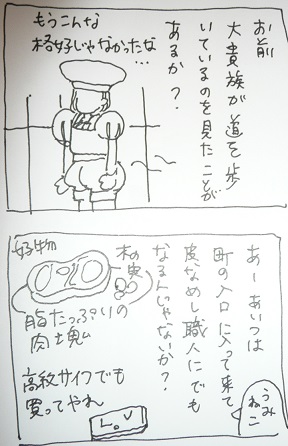 お前
大貴族が道を歩
いているのを見たことが
あるか?
もうこんな
格好じゃなかったな
…
あーあいつは
町の入口に入って来て
皮なめし職人にでも
なるんじゃないか?
うみ
ねこ
好物
木の実
脂たっぷりの
肉塊
高級サイフでも
買ってやれ
L.V